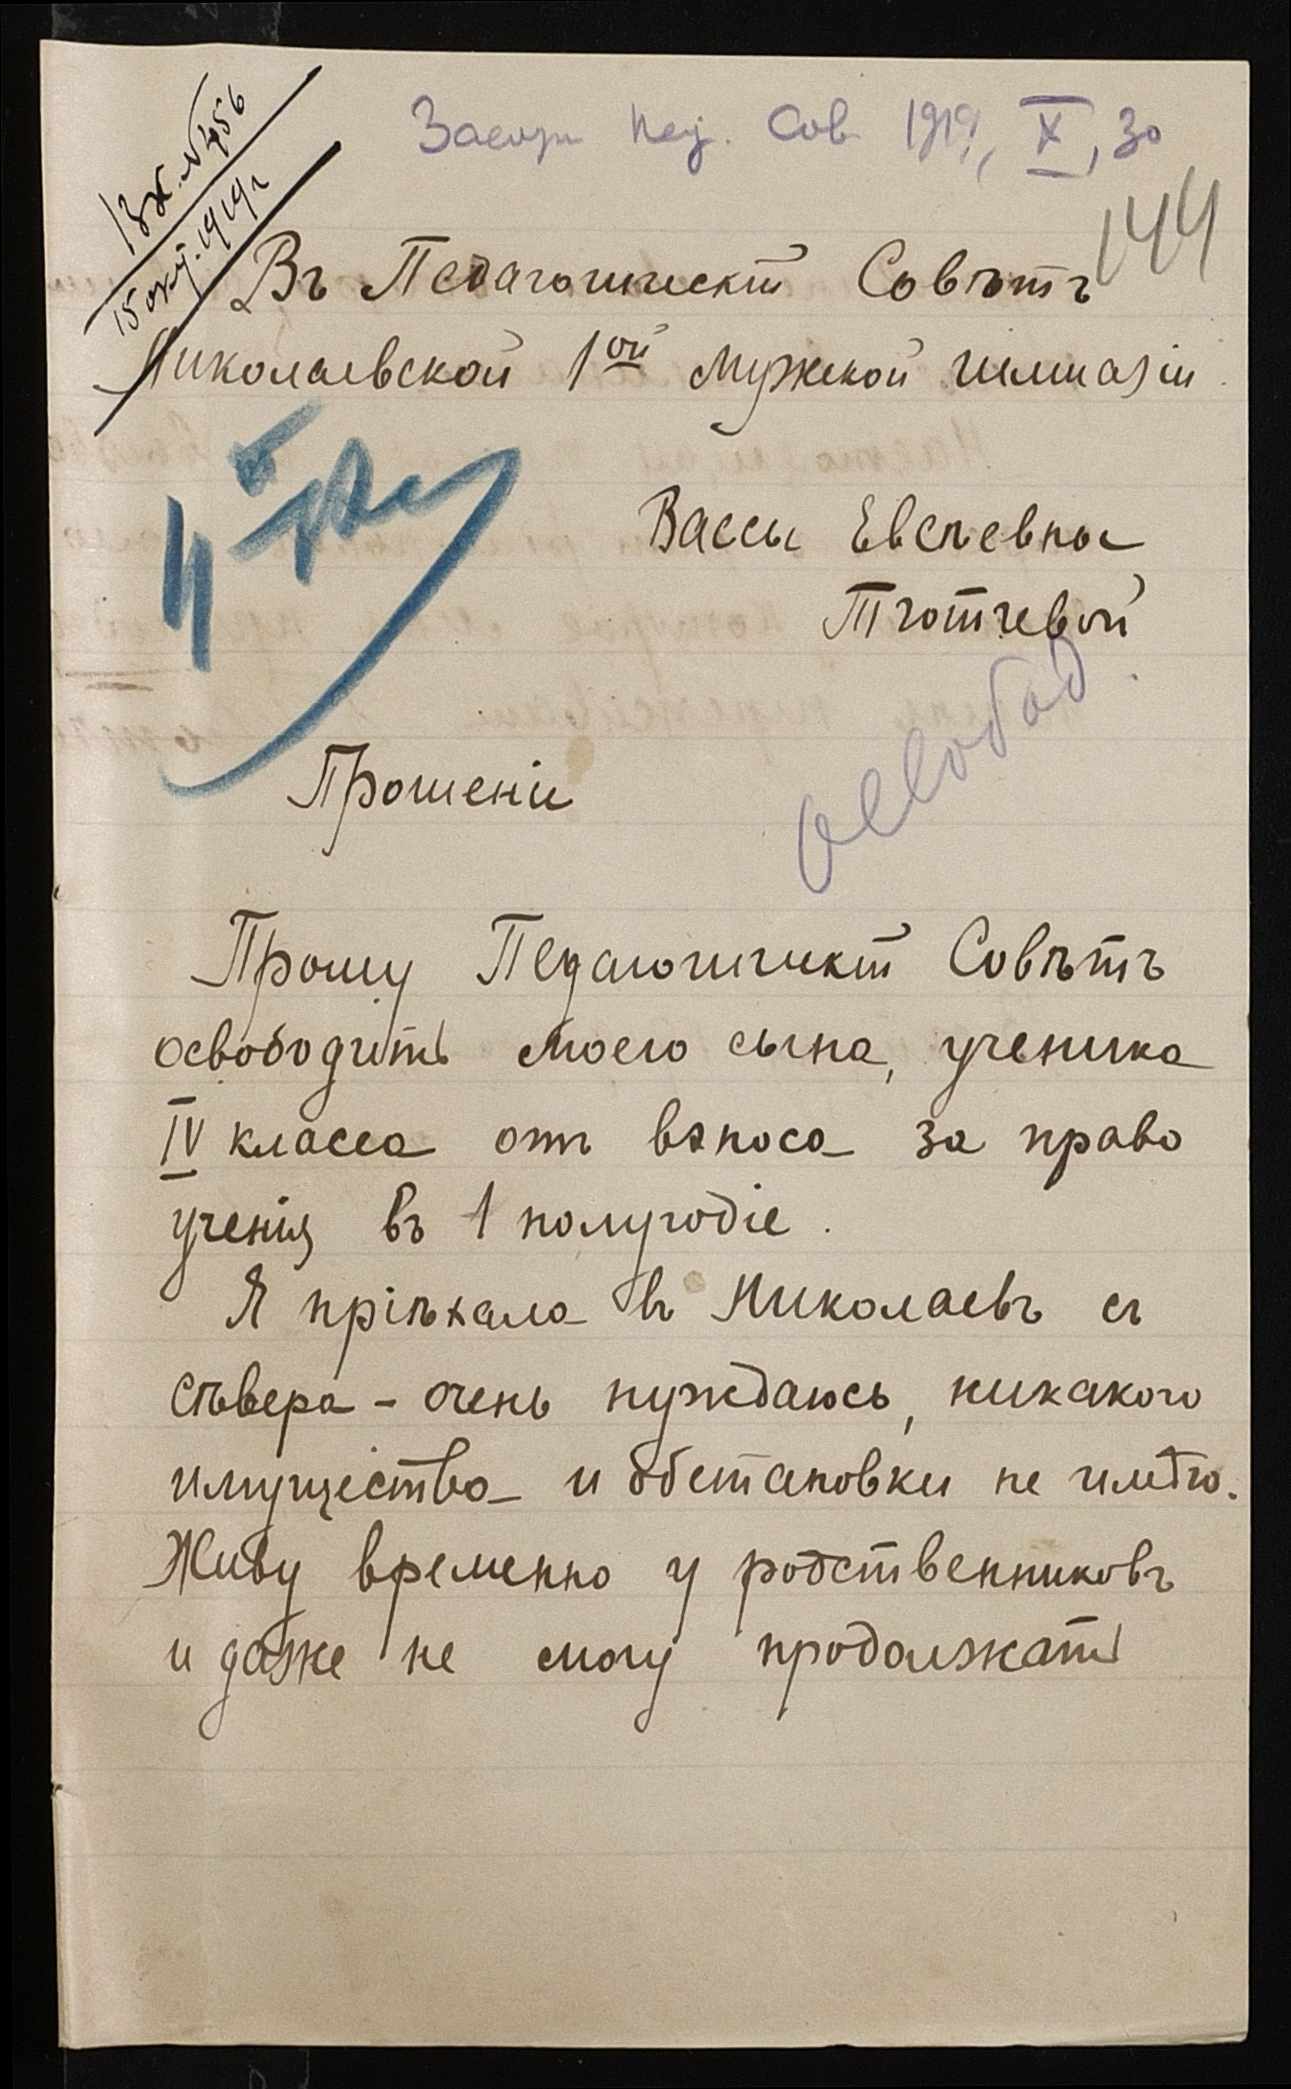 Вх. № 456
15 окт. 1919 г
Засед Пед. Сов 1919, X, 30
144
Въ Педагогическій Совѣтъ
Николаевской 1ой мужской гимназіи.
Вассы Евсѣевны
Тютчевой
освобод.
Прошеніе
Прошу Педагогическій Совѣтъ
освободить моего сына, ученика
IV класса отъ взноса за право
ученія въ 1 полугодіе.
Я пріѣхала въ Николаевъ съ
сѣвера - очень нуждаюсь, никакого
имущества и обстановки не имѣю.
Живу временно у родственниковъ
и даже не могу продолжать